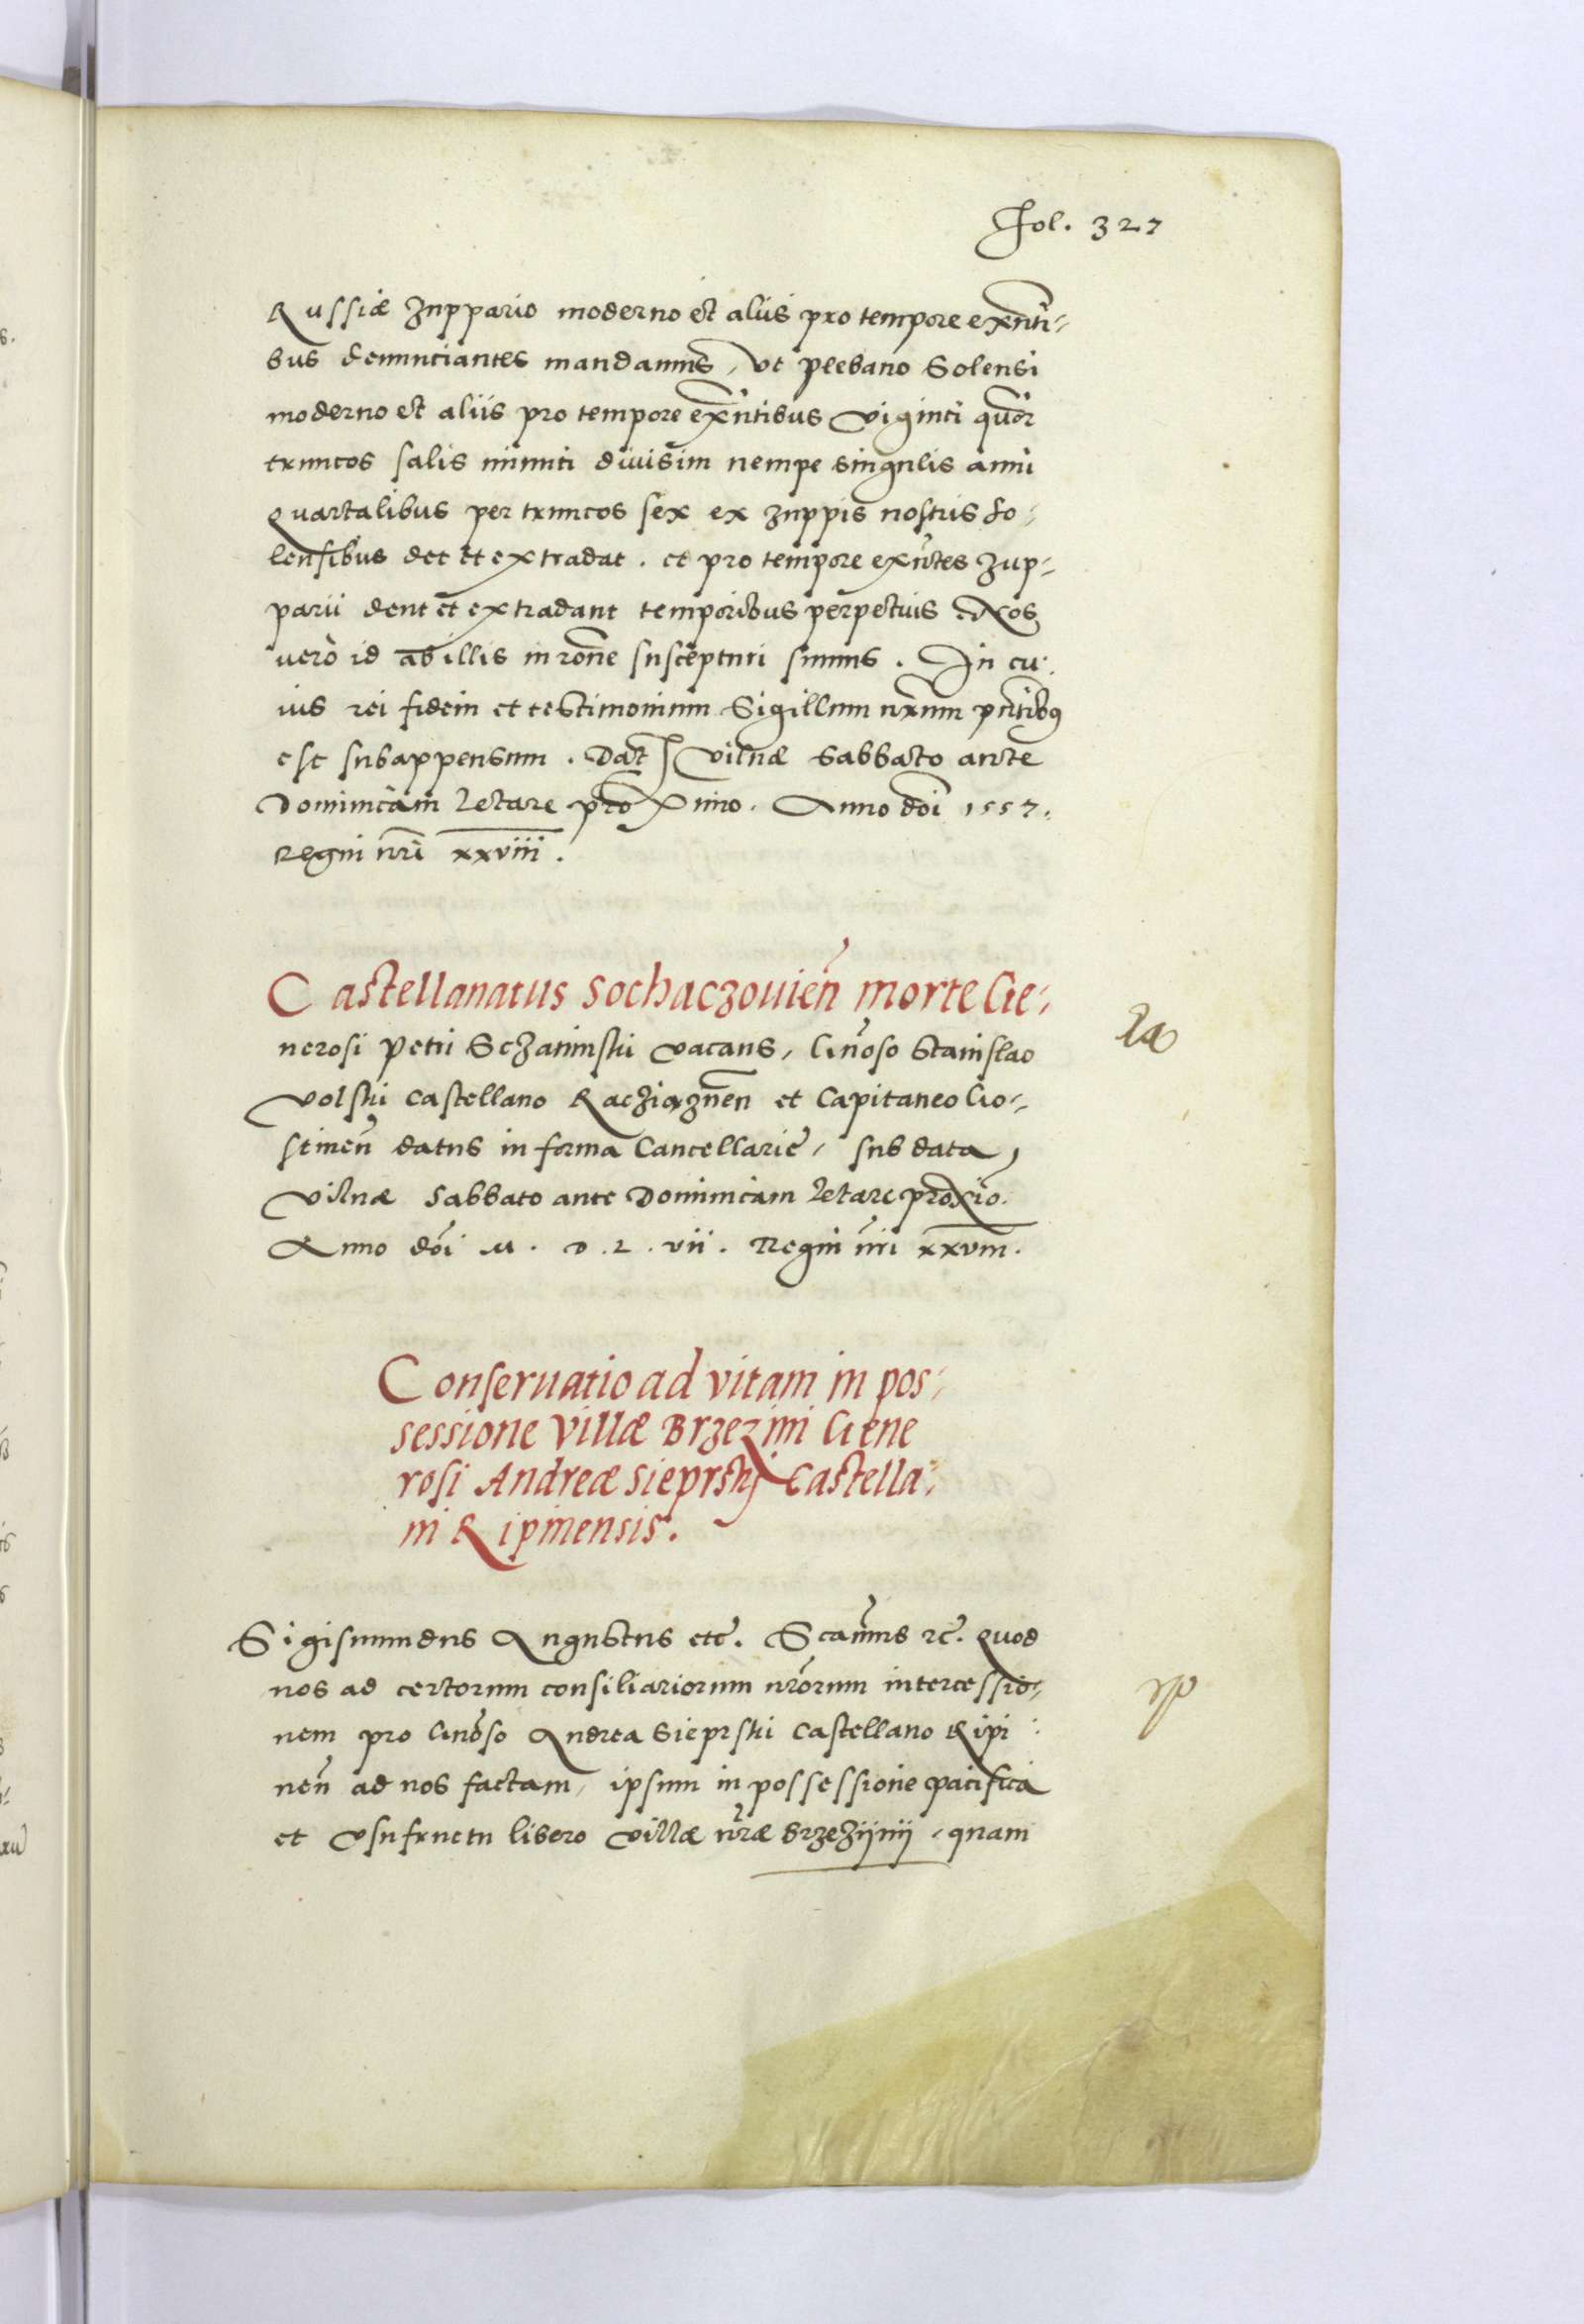 Fol. 327
Russiæ zuppario moderno et aliis pro tempore exn̄ti-
bus denunciantes mandamus, ut plebano Solensi
moderno et aliis pro tempore exn̄tibus viginti quor̄
truncos salis minuti divisim nempe singulis anni
quartalibus per truncos sex ex zuppis nostris So-
lensibus det et extradat. et pro tempore exn̄tes zup-
parii dent et extradant temporibus perpetuis
vero id ab illis in ron̄e suscepturi sumus. In cu-
ius rei fidem et testimonium Sigillum nr̄um pn̄tibus
est subappensum. Dat Vilnæ Sabbato ante
Dominicam letare proximo. Anno doī 1557.
Regni nrī xxviii.
Castellanatus Sochaczovien̄ morte Ge-
nerosi Petri Vacans, Gn̄oso Stanislao
Volski Castellano Racziąznen̄ et Capitaneo Go-
stinen̄ datus in forma Cancellarie, sub data,
Vilnæ Sabbato ante Dominicam letare proxio.
Anno doī M. D. L. vii. Regni nrī xxviii.
Conservatio ad vitam in pos-
sessione Villæ Brzezini Gene
rosi Andreæ Sieprskj Castella-
ni Ripinensis.
Sigismundus Augustus etc. quod
nos ad certorum consiliariorum nr̄orum intercessio-
nem pro Gn̄oso Andrea Sieprski Castellano Ripi-
nen̄ ad nos factam, ipsum in possessione pacifica
et usufructu libero villæ nr̄æ Brzezijnij, quam